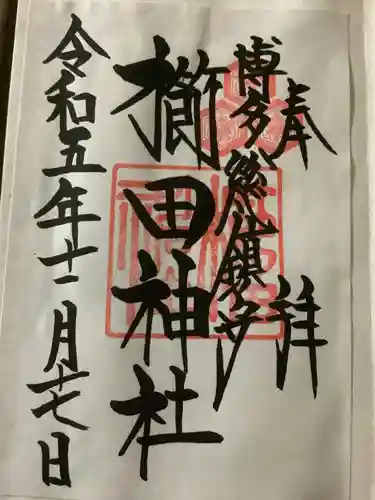 奉拝
博多総鎮守
櫛田神社
令和五年十一月十七日